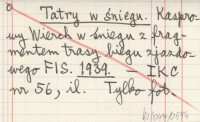 Tatry w śniegu. Kaspro-
wy Wierch w śniegu z frag-
mentem trasy biegu zjazdo-
wego FIS. 1939. — IKC
nr 56, il. Tylko fot.